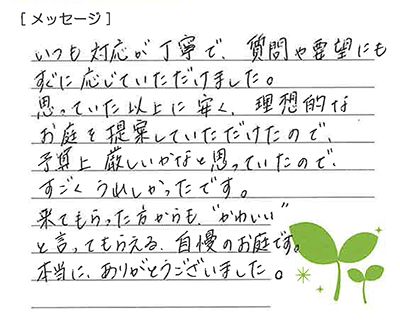 [ メッセージ ]
いつも対応が丁寧で、質問や要望にも
すぐに応じていただけました。
思っていた以上に安く、理想的な
お庭を提案していただけたので、
予算上厳しいかなと思っていたので、
すごくうれしかったです。
来てもらった方からも、"かわいい"
と言ってもらえる、自慢のお庭です。
本当に、ありがとうございました。